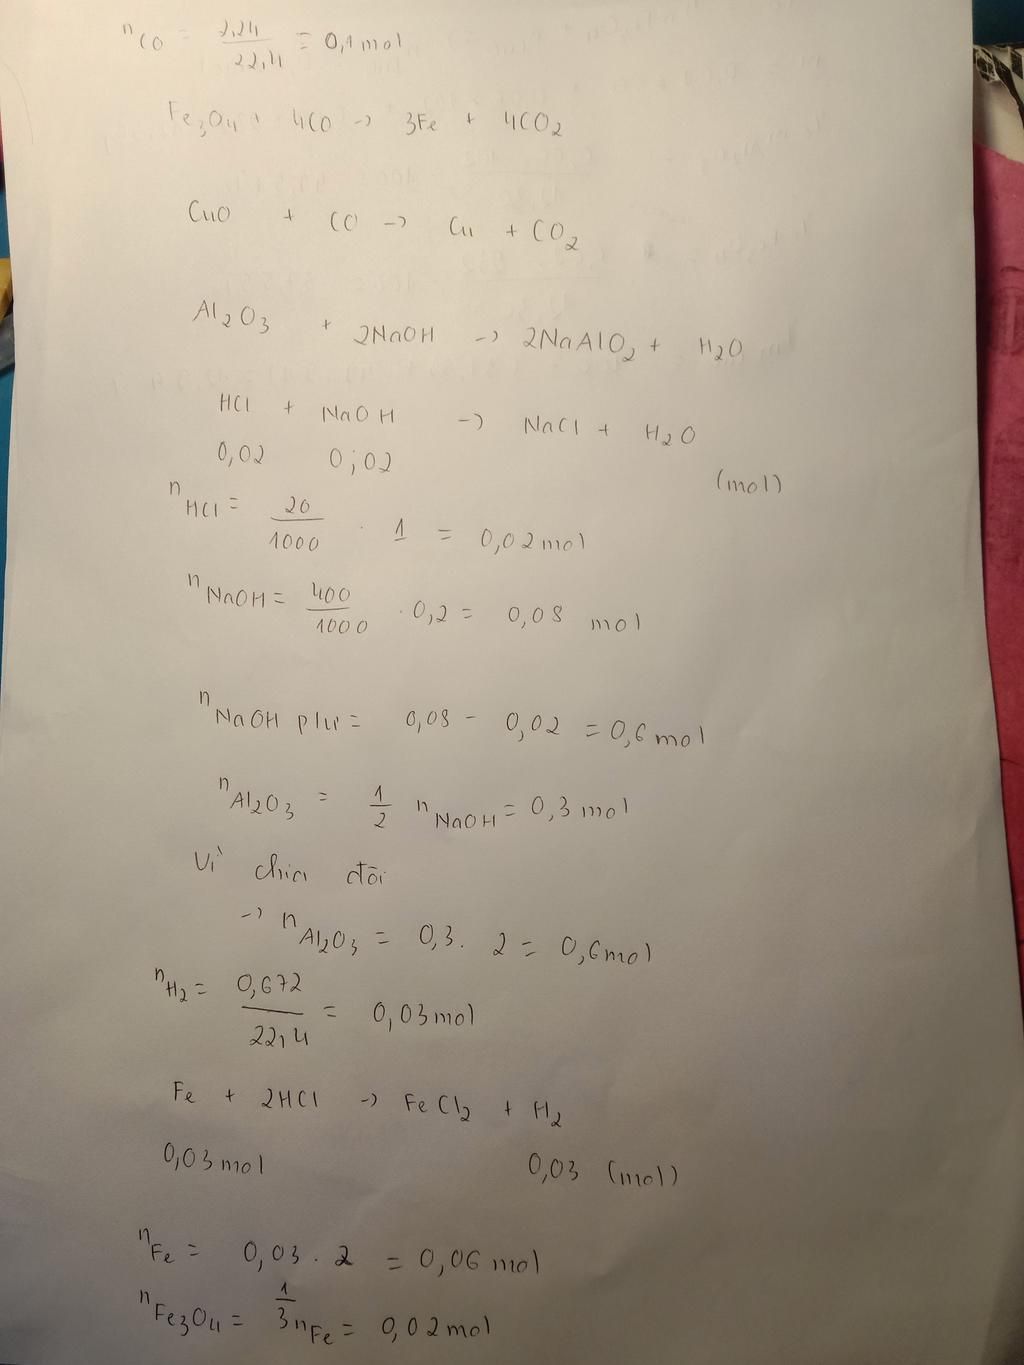 nCO = 2,24/22,4 = 0,1 mol
Fe3O4 + 4CO -> 3Fe + 4CO2
CuO + CO -> Cu + CO2
Al2O3 + 2NaOH -> 2NaAlO2 + H2O
HCl + NaOH -> NaCl + H2O
0,02 0;02 (mol)
nHCl = 20/1000 . 1 = 0,02 mol
nNaOH = 400/1000 . 0,2 = 0,08 mol
nNaOH plư = 0,08 - 0,02 = 0,6 mol
nAl2O3 = 1/2 nNaOH = 0,3 mol
Vì chia đôi
-> nAl2O3 = 0,3 . 2 = 0,6 mol
nH2 = 0,672/22,4 = 0,03 mol
Fe + 2HCl -> FeCl2 + H2
0,03 mol 0,03 (mol)
nFe = 0,03 . 2 = 0,06 mol
nFe3O4 = 1/3 nFe = 0,02 mol